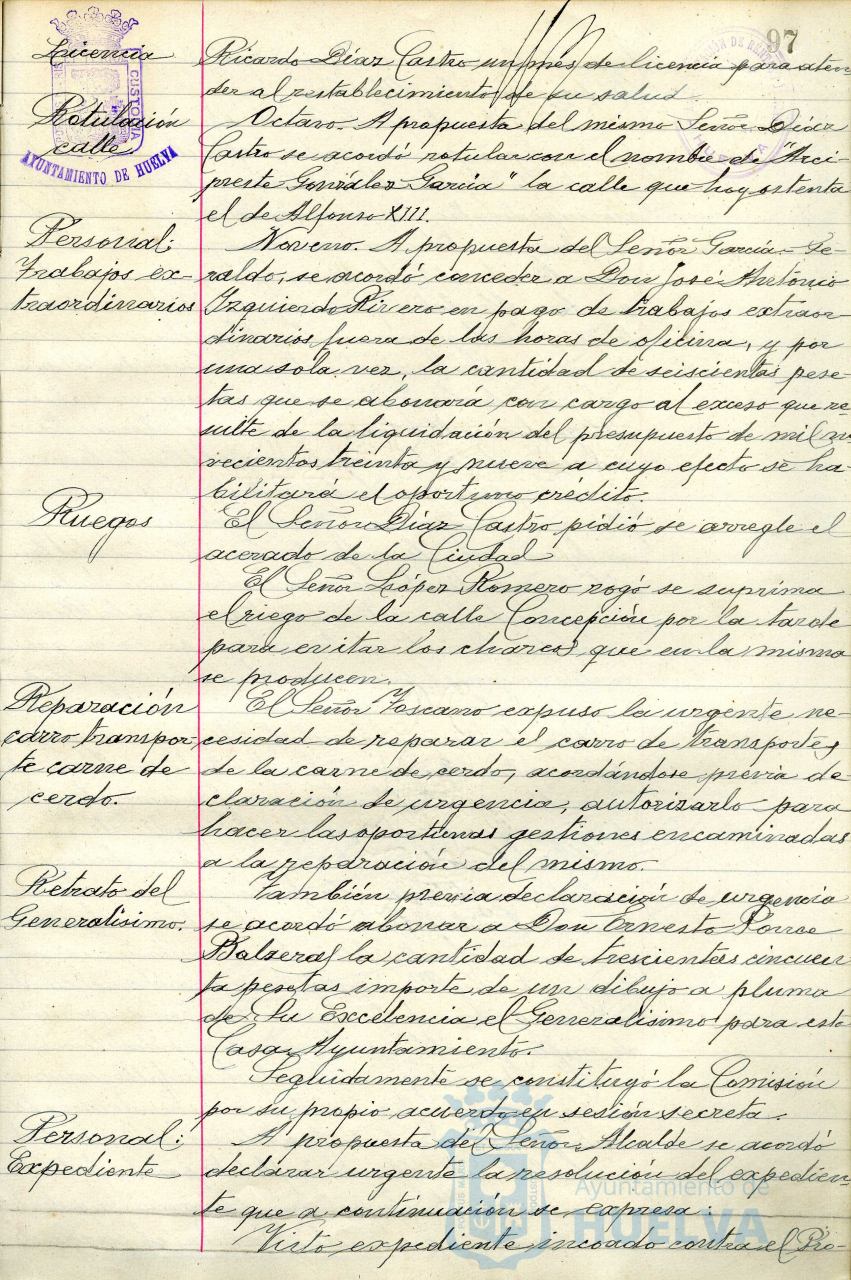 97
Licencia
Ricardo Díaz Castro, un mes de licencia para aten-
der al restablecimiento de su salud.
Rotulación
calle
AYUNTAMIENTO DE HUELVA
CUSTODIA
Octavo. A propuesta del mismo Señor Díaz
Castro se acordó rotular con el nombre de "Arci-
preste González García" la calle que hoy ostenta
el de Alfonso XIII.
Personal:
Trabajos ex-
traordinarios
Noveno. A propuesta del Señor García-Te-
raldo, se acordó conceder a Don José Antonio
Izquierdo Rivero en pago de trabajos extraor-
dinarios fuera de las horas de oficina, y por
una sola vez, la cantidad de seiscientas pese-
tas que se abonará con cargo al exceso que re-
sulte de la liquidación del presupuesto de mil no-
vecientos treinta y nueve a cuyo efecto se ha-
bilitará el oportuno crédito.
Ruegos
El Señor Díaz Castro pidió se arregle el
acerado de la Ciudad
El Señor López Romero rogó se suprima
el riego de la calle Concepción por la tarde
para evitar los charcos que en la misma
se producen.
Reparación
carro transpor-
te carne de
cerdo.
El Señor Toscano expuso la urgente ne-
cesidad de reparar el carro de transportes
de la carne de cerdo, acordándose previa de-
claración de urgencia, autorizarlo para
hacer las oportunas gestiones encaminadas
a la reparación del mismo.
Retrato del
Generalísimo.
También previa declaración de urgencia
se acordó abonar a Don Ernesto Ponce
la cantidad de trescientas cincuen-
ta pesetas importe de un dibujo a pluma
de Su Excelencia el Generalísimo para esta
Casa Ayuntamiento.
Seguidamente se constituyó la Comisión
por su propio acuerdo en sesión secreta.
Personal:
Expediente
A propuesta del Señor Alcalde se acordó
declarar urgente la resolución del expedien-
te que a continuación se expresa:
Visto expediente incoado contra el Pro-
Ayuntamiento de
HUELVA